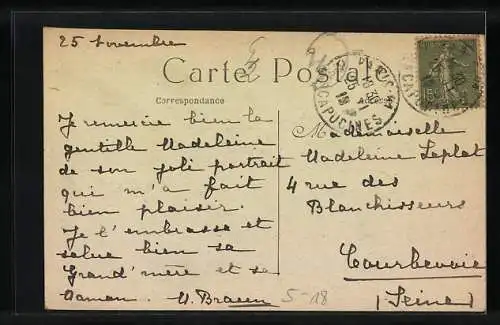 25 Novembre
Carte Postale
Correspondance
Adresse
Je remercie bien la
gentille Madeleine
de son joli portrait
qui m'a fait
bien plaisir.
Je l'embrasse et
salue bien sa
Grand'mère et sa
maman. M. Braun
Mademoiselle
Madeleine Leplat
4 rue des
Blanchisseurs
Courbevoie
(Seine)
CAPUCINES
5-18